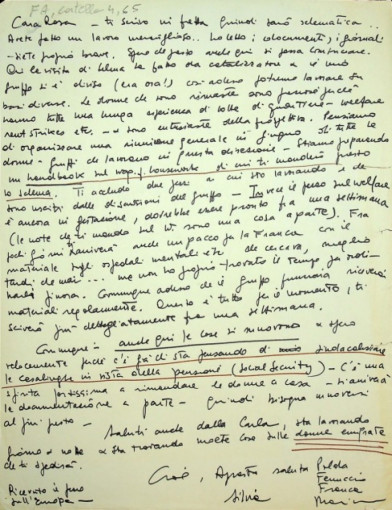 Cara Rosa - ti scrivo in fretta quindi sarò schematica..
Avete fatto un lavoro meraviglioso. Ho letto i documenti, i giornali
- siete proprio brave. Spero di poter anche qui si possa continuare.
Qui la visita di Selma ha fatto da catalizzatore e il mio
gruppo si è diviso (era ora!) così adesso potremo lavorare su
basi diverse. Le donne che sono rimaste sono
hanno tutte una lunga esperienza di lotte di quartiere - welfare
rent strikes etc. - e sono entusiaste della prospettiva. Pensiamo
di organizzare una riunione generale in giugno di tutte le
donne - gruppi che lavorano in questa direzione - Stiamo preparando
un handbook sul wop. / housework di cui ti manderò presto
lo schema. Ti accludo due su cui sto lavorando e che
sono usciti dalle discussioni del gruppo - Invece il pezzo sul welfare
è ancora in gestazione, dovrebbe essere pronto fra una settimana
(le note che ti mando sul W sono una cosa a parte). Fra
pochi giorni arriverà anche un pacco per la Franca con il
materiale sugli ospedali mentali etc. che cercava, meglio
tardi che mai... ma non ho proprio trovato il tempo
finora. Comunque adesso che il gruppo funziona riceverai
materiali regolarmente. Questo è tutto per il momento, ti
scriverò più dettagliatamente fra una settimana.
Comunque anche qui le cose si muovono e spero
velocemente perché c'è già chi sta pensando di sindacalizzare
le casalinghe in vista della pensione (Social Security) - C'è una
spinta fortissima a rimandare le donne a casa - ti arriverà
la documentazione a parte - quindi bisogna muoversi
al più presto -
Saluti anche dalla Carla, sta lavorando
e sta trovando molte cose sulle donne emigrate
che ti spedirà.
Ciao, Aspetto saluta Polda
Ferruccio
Franca
Silvia
Ricevuto il pezzo
sull'Europa -
FA, 4,65